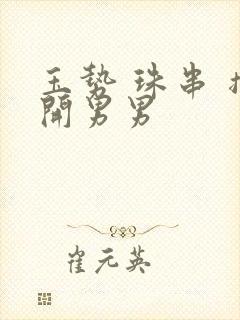 玉势 珠串 扌
開男男
崔元英